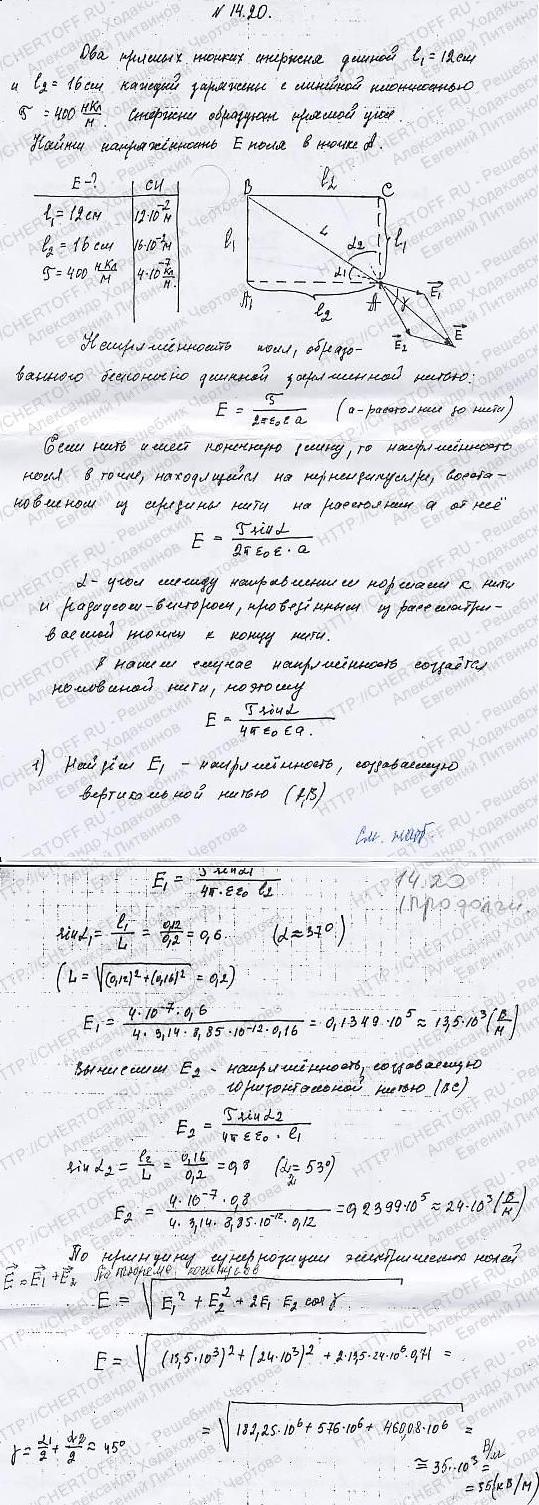 N 14.20.
Два прямых тонких стержня длиной l₁ = 12 см
и l₂ = 16 см каждый заряжены с линейной плотностью
τ = 400 нКл/м. Стержни образуют прямой угол.
Найти напряжённость E поля в точке A.
E-? СИ
l₁ = 12 см 12·10⁻² м
l₂ = 16 см 16·10⁻² м
τ = 400 нКл/м 4·10⁻⁷ Кл/м
B l₂ C
l₁ L α₂ l₁
α₁
A₁ l₂ A γ E₁
E₂ E
Напряжённость поля, образо-
ванного бесконечно длинной заряженной нитью:
E = τ/(2πε₀εa) (a - расстояние до нити)
Если нить имеет конечную длину, то напряжённость
поля в точке, находящейся на перпендикуляре, восста-
новленном из середины нити на расстоянии a от неё
E = τ sinα/(2πε₀ε·a)
α - угол между направлением нормали к нити
и радиусом-вектором, проведённым из рассматри-
ваемой точки к концу нити.
В нашем случае напряжённость создаётся
половиной нити, поэтому
E = τ sinα/(4πε₀εa.)
1) Найдём E₁ - напряжённость, создаваемую
вертикальной нитью (A₁B)
См. на об.
14.20
(продолж.
E₁ = τ sinα₁/(4π·εε₀ l₂)
sinα₁ = l₁/L = 0,12/0,2 = 0,6 (α ≈ 37°)
(L = √((0,12)² + (0,16)²) = 0,2)
E₁ = 4·10⁻⁷·0,6/(4·3,14·8,85·10⁻¹²·0,16) = 0,1349·10⁵ ≈ 13,5·10³ (В/м)
Вычислим E₂ - напряжённость, создаваемую
горизонтальной нитью (BC)
E₂ = τ sinα₂/(4πεε₀·l₁)
sinα₂ = l₂/L = 0,16/0,2 = 0,8 (α₂ = 53°)
E₂ = 4·10⁻⁷·0,8/(4·3,14·8,85·10⁻¹²·0,12) = 0,2399·10⁵ ≈ 24·10³ (В/м)
По принципу суперпозиции электрических полей
E = E₁ + E₂ По теореме косинусов
E = √(E₁² + E₂² + 2E₁·E₂ cosγ)
E = √((13,5·10³)² + (24·10³)² + 2·13,5·24·10⁶·0,71) =
= √(182,25·10⁶ + 576·10⁶ + 460,08·10⁶) =
γ = α₁/2 + α₂/2 = 45°
≅ 35·10³ В/м =
= 35 (кВ/м)
HTTP://CHERTOFF.RU - Решебник Чертова
Александр Ходаковский
Евгений Литвинов